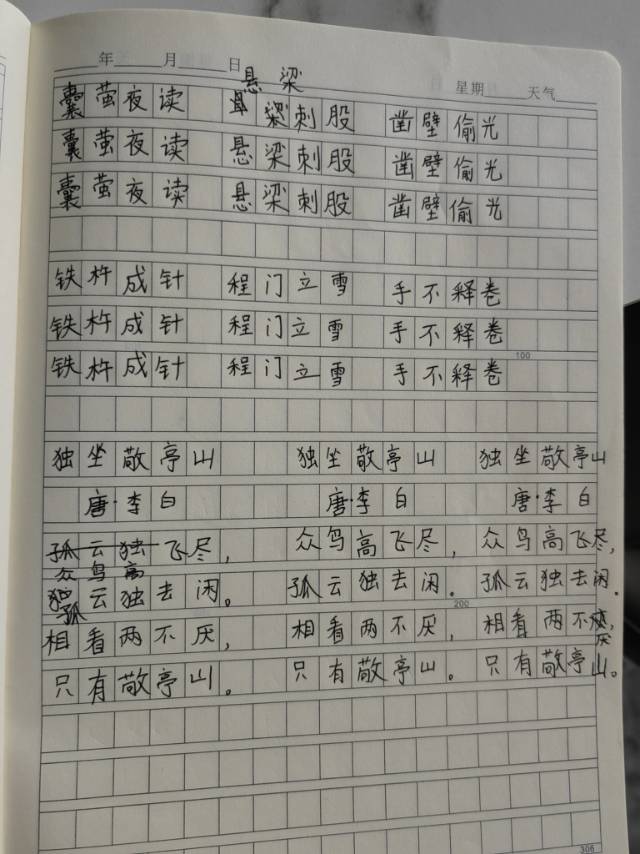 年 月 日 星期 天气
悬 梁
囊萤夜读 梁刺股 凿壁偷光
囊萤夜读 悬梁刺股 凿壁偷光
囊萤夜读 悬梁刺股 凿壁偷光
铁杵成针 程门立雪 手不释卷
铁杵成针 程门立雪 手不释卷
100
铁杵成针 程门立雪 手不释卷
独坐敬亭山 独坐敬亭山 独坐敬亭山
唐·李白 唐·李白 唐·李白
孤云独飞尽, 众鸟高飞尽, 众鸟高飞尽,
众鸟高
独云独去闲。 孤云独去闲。 孤云独去闲.
孤 200
相看两不厌, 相看两不厌, 相看两不,
厌
只有敬亭山。 只有敬亭山。 只有敬亭山。
306